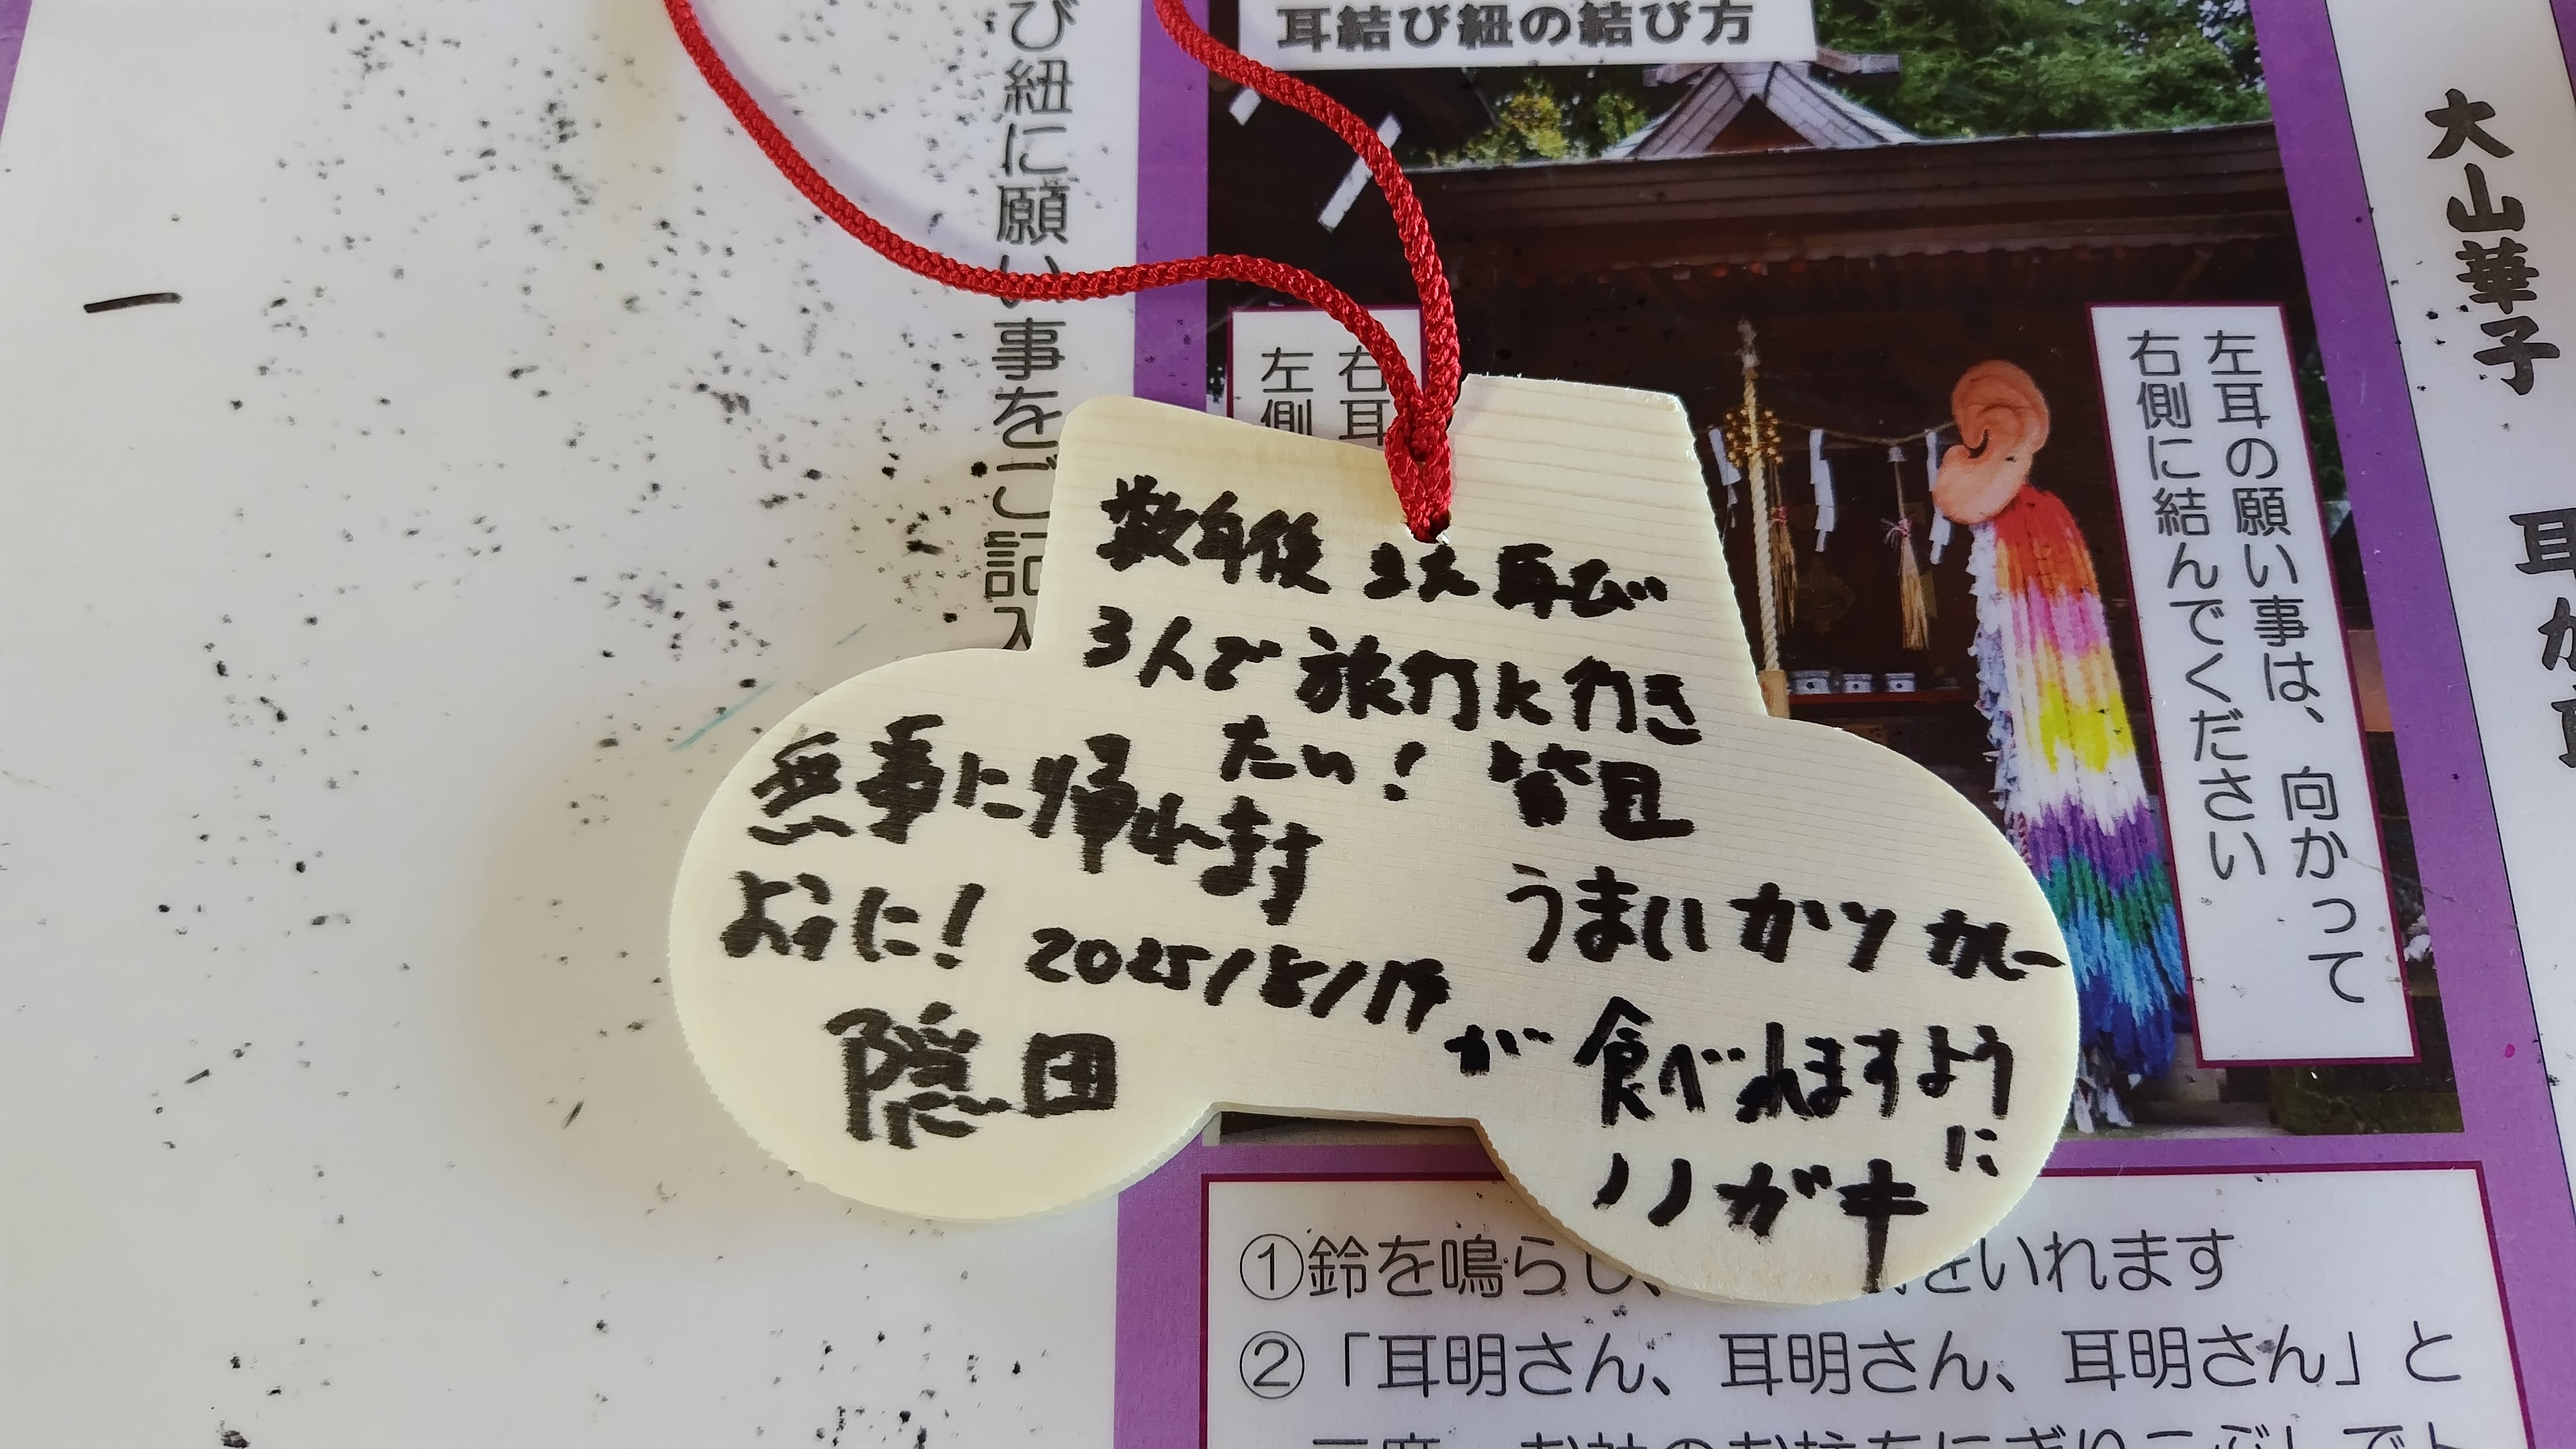 耳結び紐の結び方
び紐に願い事をご記入
大山華子
左耳の願い事は、向かって
右側に結んでください
右耳
左側
数年後 また再び
3人で旅行に行き
たい! 皆且
無事に帰れます
ように!
2025/8/14
隠田
うまいカツカレー
が食べれますよう
に
ノノガキ
①鈴を鳴らし、
をいれます
②「耳明さん、耳明さん、耳明さん」と